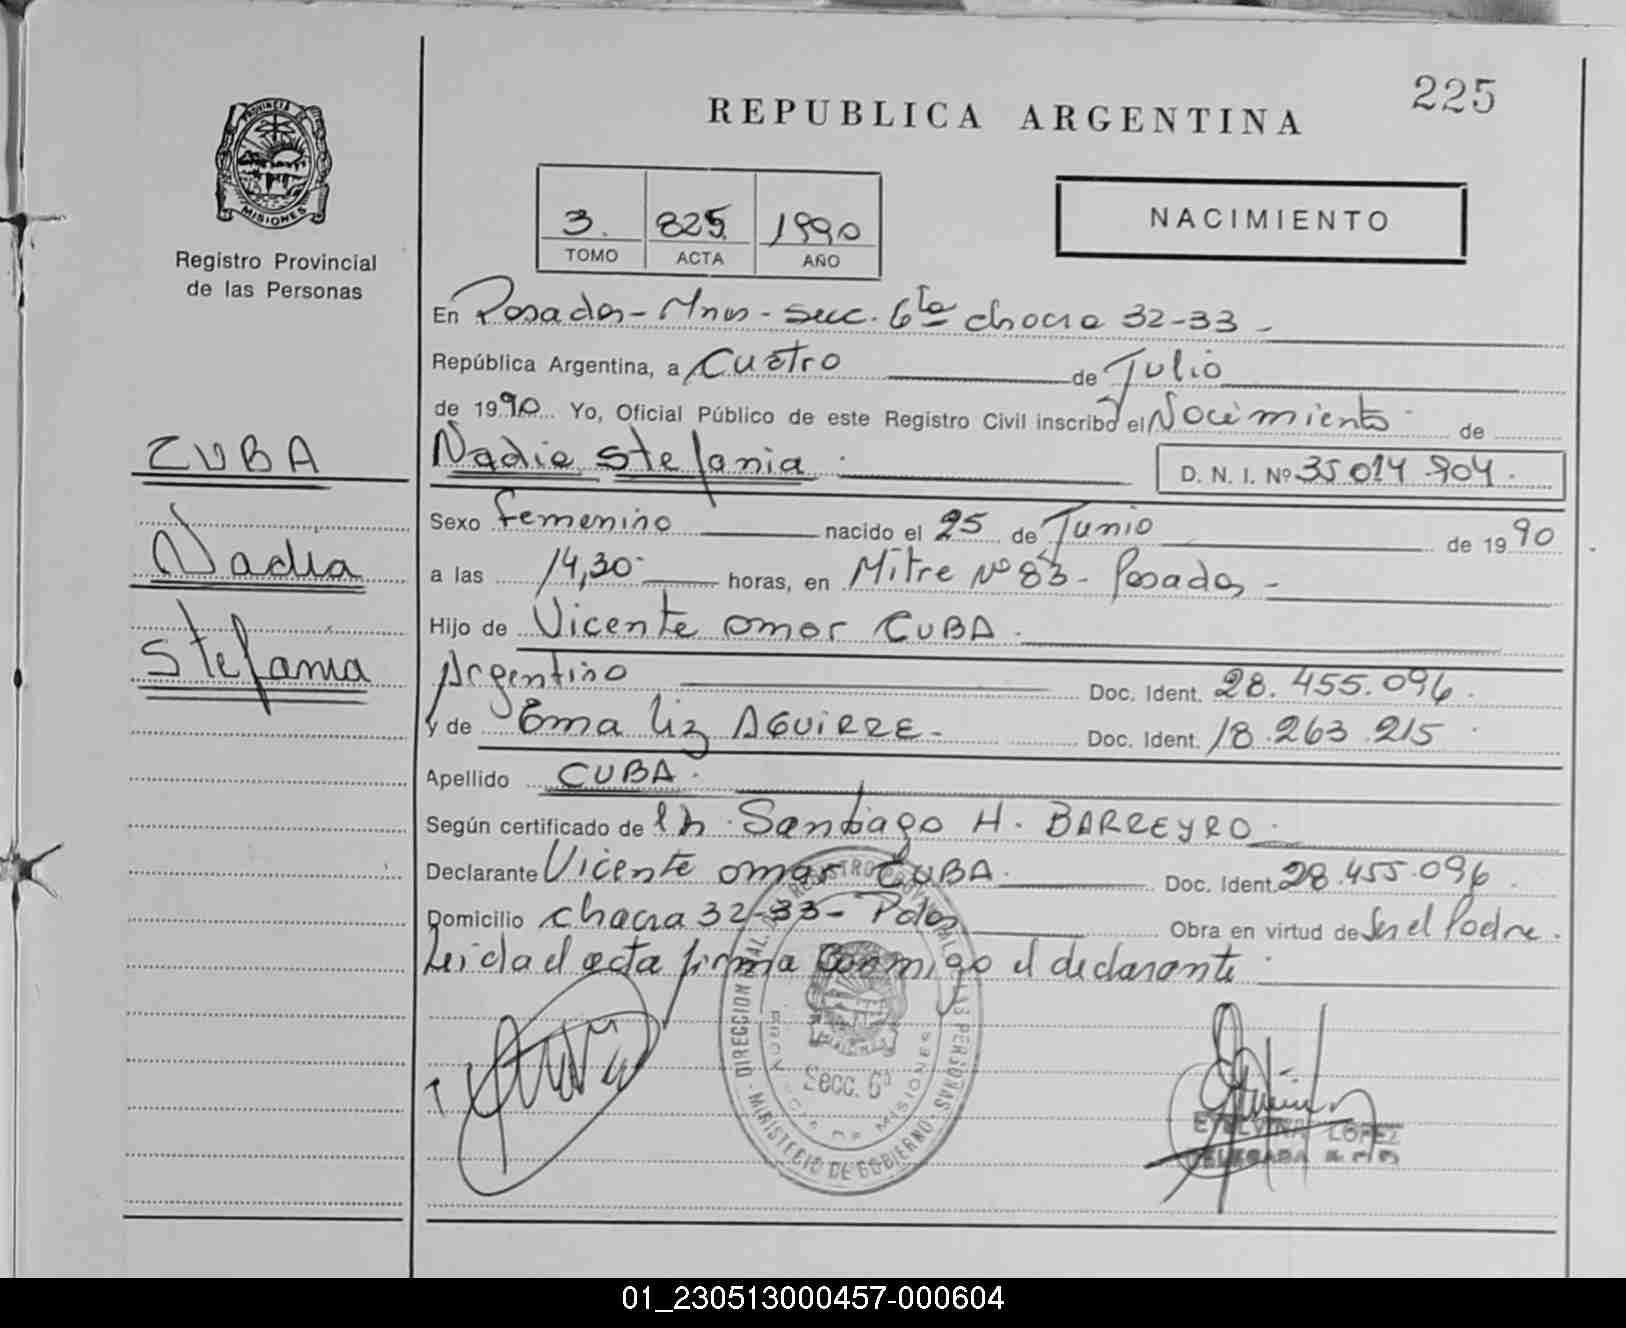 225
REPUBLICA ARGENTINA
PROVINCIA DE
MISIONES
Registro Provincial
de las Personas
3. 825 1990
TOMO ACTA AÑO
NACIMIENTO
En Posadas - Mnes - Secc. 6ta chacra 32-33 -
República Argentina, a Cuatro de Julio
de 1990 Yo, Oficial Público de este Registro Civil inscribo el Nacimiento de
Nadia Stefania D. N. I. Nº 35.014.904.
Sexo femenino nacido el 25 de Junio de 1990
a las 14,30 horas, en Mitre Nº 83 - Posadas -
Hijo de Vicente Omar CUBA.
Argentino Doc. Ident. 28.455.096.
y de Ema Liz AGUIRRE. Doc. Ident. 18.263.215
Apellido CUBA.
Según certificado de Santiago H. BARREYRO.
Declarante Vicente Omar CUBA. Doc. Ident. 28.455.096.
Domicilio chacra 32-33 - Pdas Obra en virtud de Ser el Padre.
Leida el acta firma conmigo el declarante.
CUBA
Nadia
Stefania
DIRECCION GRAL. DE REGISTRO PROVINCIAL DE LAS PERSONAS - MINISTERIO DE GOBIERNO -
Secc. 6ª
PROVINCIA DE MISIONES
ETELVINA LOPEZ
DELEGADA
01_230513000457-000604